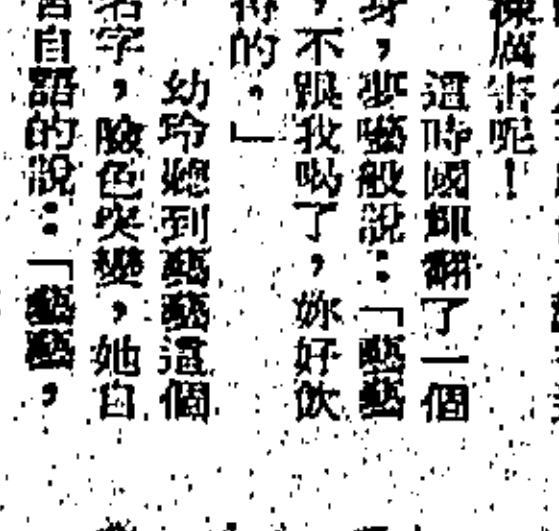 厲害呢！
這時國輝翻了一個
身，夢囈般說：「藝藝
，不跟我喝了，妳好飲
得的。」
幼玲聽到藝藝這個
名字，臉色突變，她自
言自語的說：「藝藝，